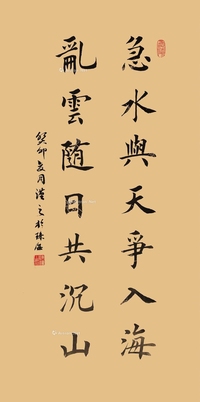 急水與天爭入海
亂雲随日共沉山
癸卯